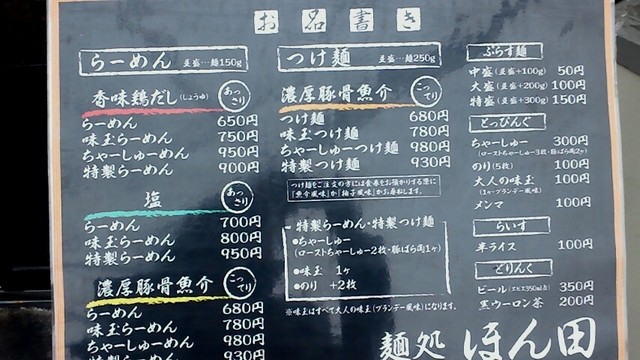 お品書き
らーめん 並盛…麺150g
香味鶏だし(しょうゆ) あっさり
らーめん 650円
味玉らーめん 750円
ちゃーしゅーめん 950円
特製らーめん 900円
塩 あっさり
らーめん 700円
味玉らーめん 800円
特製らーめん 950円
濃厚豚骨魚介 こってり
らーめん 680円
味玉らーめん 780円
ちゃーしゅーめん 980円
特製らーめん 930円
つけ麺 並盛…麺250g
濃厚豚骨魚介 こってり
つけ麺 680円
味玉つけ麺 780円
ちゃーしゅーつけ麺 980円
特製つけ麺 930円
つけ麺をご注文の方には食券をお預かりする際に
「魚介風味」か「柚子風味」かお尋ねします。
特製らーめん・特製つけ麺
●ちゃーしゅー
(ローストちゃーしゅー2枚・豚ばら肉1ヶ)
●味玉 1ヶ
●のり +2枚
※味玉はすべて大人の味玉(ブランデー風味)になります。
ぷらす麺
中盛(並盛+100g) 50円
大盛(並盛+200g) 100円
特盛(並盛+300g) 150円
とっぴんぐ
ちゃーしゅー 300円
(ローストちゃーしゅー3枚・豚ばら肉2ヶ)
のり(5枚) 100円
大人の味玉 100円
(1ヶ・ブランデー風味)
メンマ 100円
らいす
半ライス 100円
どりんく
ビール(エビス350ml缶) 350円
黒ウーロン茶 200円
麺処 ほん田